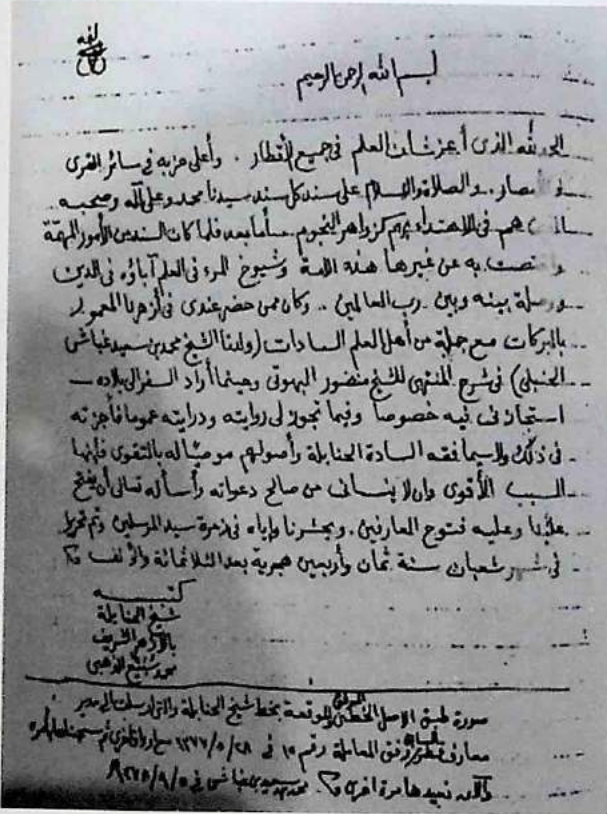 بسم الله الرحمن الرحيم
الحمد لله الذي أعز شأن العلم في جميع الأقطار . وأعلى حزبه في سائر القرى
والأمصار . والصلاة والسلام على سند كل سند سيدنا محمد وعلى آله وصحبه
هم في الاهتداء بهم كزواهر النجوم . أما بعد فلما كان السند من الأمور المهمة
واختصت به عن غيرها هذه الأمة وشيوخ المرء في العلم آباؤه في الدين
ووصلة بينه وبين رب العالمين .. وكان ممن حضر عندي في أزهرنا المعمور
بالبركات مع جملة من أهل العلم السادات (ولدنا الشيخ محمد بن سيد غباشي
الحنبلي) في شرح المنتهى للشيخ منصور البهوتي وحينما أراد السفر الى بلاده
استجازني فيه خصوصا وفيما تجوز لي روايته ودرايته عموما فأجزته
في ذلك ولاسيما فقه السادة الحنابلة وأصولهم موصيا له بالتقوى فإنها
السبب الأقوى وان لا ينساني من صالح دعواته وأسأله تعالى أن يفتح
علينا وعليه فتوح العارفين . ويحشرنا وإياه في زمرة سيد المرسلين وتم تحريرا
في شهر شعبان سنة ثمان وأربعين هجرية بعد الثلاثمائة والألف
كتبه
شيخ الحنابلة
بالأزهر الشريف
محمد سبيع الذهبي
صورة طبق الاصل الخطي والموقعة بخط شيخ الحنابلة والتي ارسلت الى مدير
معارف وفق المعاملة رقم ١٥ في ١٣٧٧/٥/٢٨
والآن نعيدها مرة اخرى محمد سعيد بن غباشي في